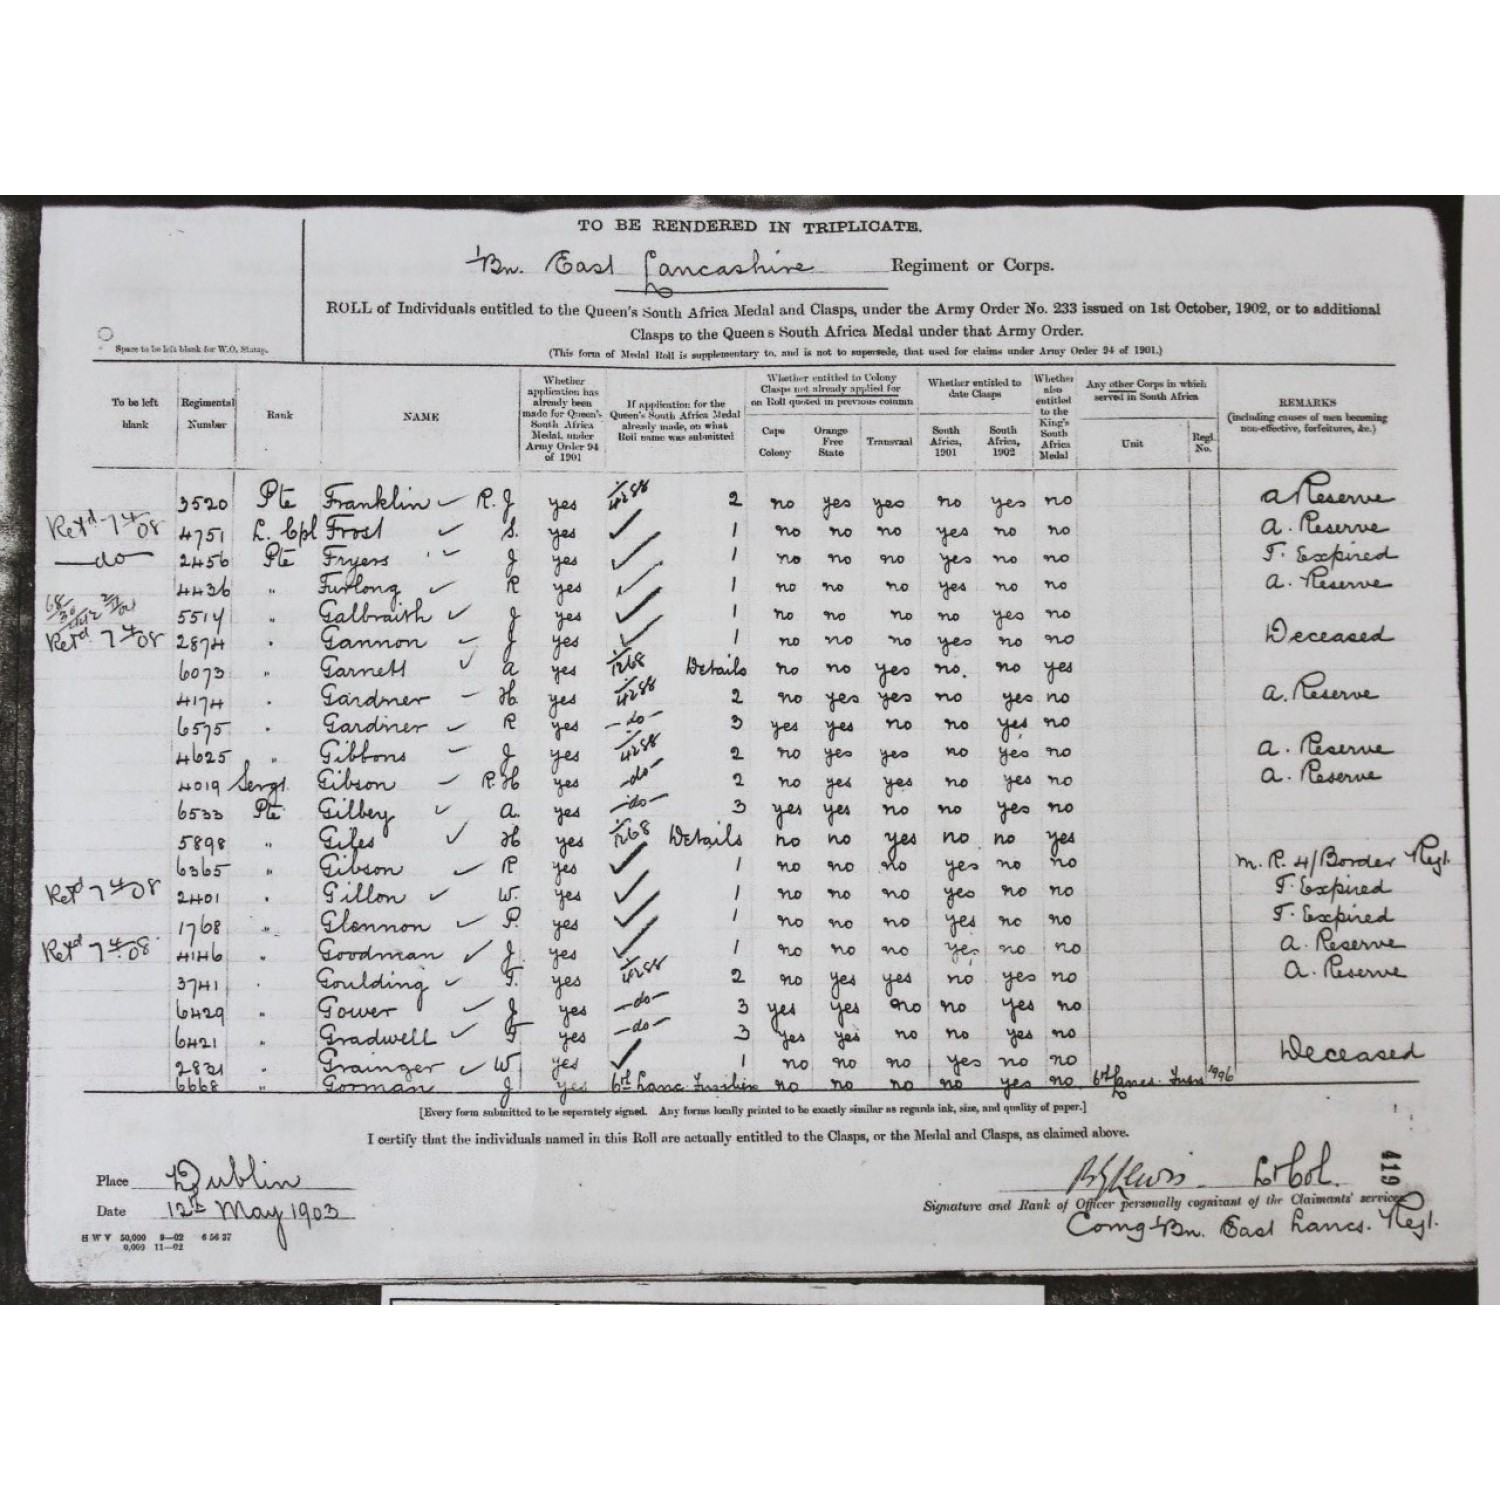 TO BE RENDERED IN TRIPLICATE.
1/Bn. East Lancashire Regiment or Corps.
ROLL of Individuals entitled to the Queen's South Africa Medal and Clasps, under the Army Order No. 233 issued on 1st October, 1902, or to additional
Clasps to the Queen's South Africa Medal under that Army Order.
Space to be left blank for W.O. Stamp.
(This form of Medal Roll is supplementary to, and is not to supersede, that used for claims under Army Order 94 of 1901.)
To be left blank Regimental Number Rank NAME Whether application has already been made for Queen's South Africa Medal, under Army Order 94 of 1901 If application for the Queen's South Africa Medal already made, on what Roll name was submitted Whether entitled to Colony Clasps not already applied for on Roll quoted in previous column Cape Colony Orange Free State Transvaal Whether entitled to date Clasps South Africa, 1901 South Africa, 1902 Whether also entitled to the King's South Africa Medal Any other Corps in which served in South Africa Unit Regl. No. REMARKS (including causes of men becoming non-effective, forfeitures, &c.)
3520 Pte Franklin R. J yes 1/4288 2 no yes yes no yes no A Reserve
Retd 7/4/08 4751 L. Cpl Frost S. yes 1 no no no yes no no A. Reserve
—do— 2456 Pte Fryers J yes 1 no no no yes no no T. Expired
4436 " Furlong R yes 1 no no no yes no no A. Reserve
5514 " Galbraith J yes 1 no no no no yes no
Retd. 7/4/08 2874 " Gannon J yes 1 no no no yes no no Deceased
6073 " Garnett A yes 1/1268 Details no no yes no. no yes
4174 " Gardner H yes 1/4288 2 no yes yes no yes no A. Reserve
6575 " Gardner R yes —do— 3 yes yes no no yes no
4625 " Gibbons J yes 1/4288 2 no yes yes no yes no A. Reserve
4019 Sergt. Gibson R. H yes —do— 2 no yes yes no yes no A. Reserve
6533 Pte Gilbey A. yes —do— 3 yes yes no no yes no
5898 " Giles H yes 1/1268 Details no no yes no no yes
6365 " Gibson R yes 1 no no no yes no no M. R. 4/Border Regt.
Retd 7/4/08 2401 " Gillon W. yes 1 no no no yes no no T. Expired
1768 " Glennon P. yes 1 no no no yes no no T. Expired
Retd 7/4/08 4146 " Goodman J. yes 1 no no no yes no no A. Reserve
3741 " Goulding T. yes 1/4288 2 no yes yes no yes no A. Reserve
6429 " Gower J yes —do— 3 yes yes no no yes no
6421 " Gradwell T yes —do— 3 yes yes no no yes no
2831 " Grainger W yes 1 no no no yes no no Deceased
6668 " Gorman J yes 6th Lanc. Fusiliers no no no no yes no 6th Lancs. Fusrs 1996
[Every form submitted to be separately signed. Any forms locally printed to be exactly similar as regards ink, size, and quality of paper.]
I certify that the individuals named in this Roll are actually entitled to the Clasps, or the Medal and Clasps, as claimed above.
Place Dublin
Lewis Lt Col. 419
Date 12th May 1903
Signature and Rank of Officer personally cognizant of the Claimants' services
Comg 1/Bn. East Lancs. Regt.
H W V 50,000 9—02 6 56 37
0,000 11—02